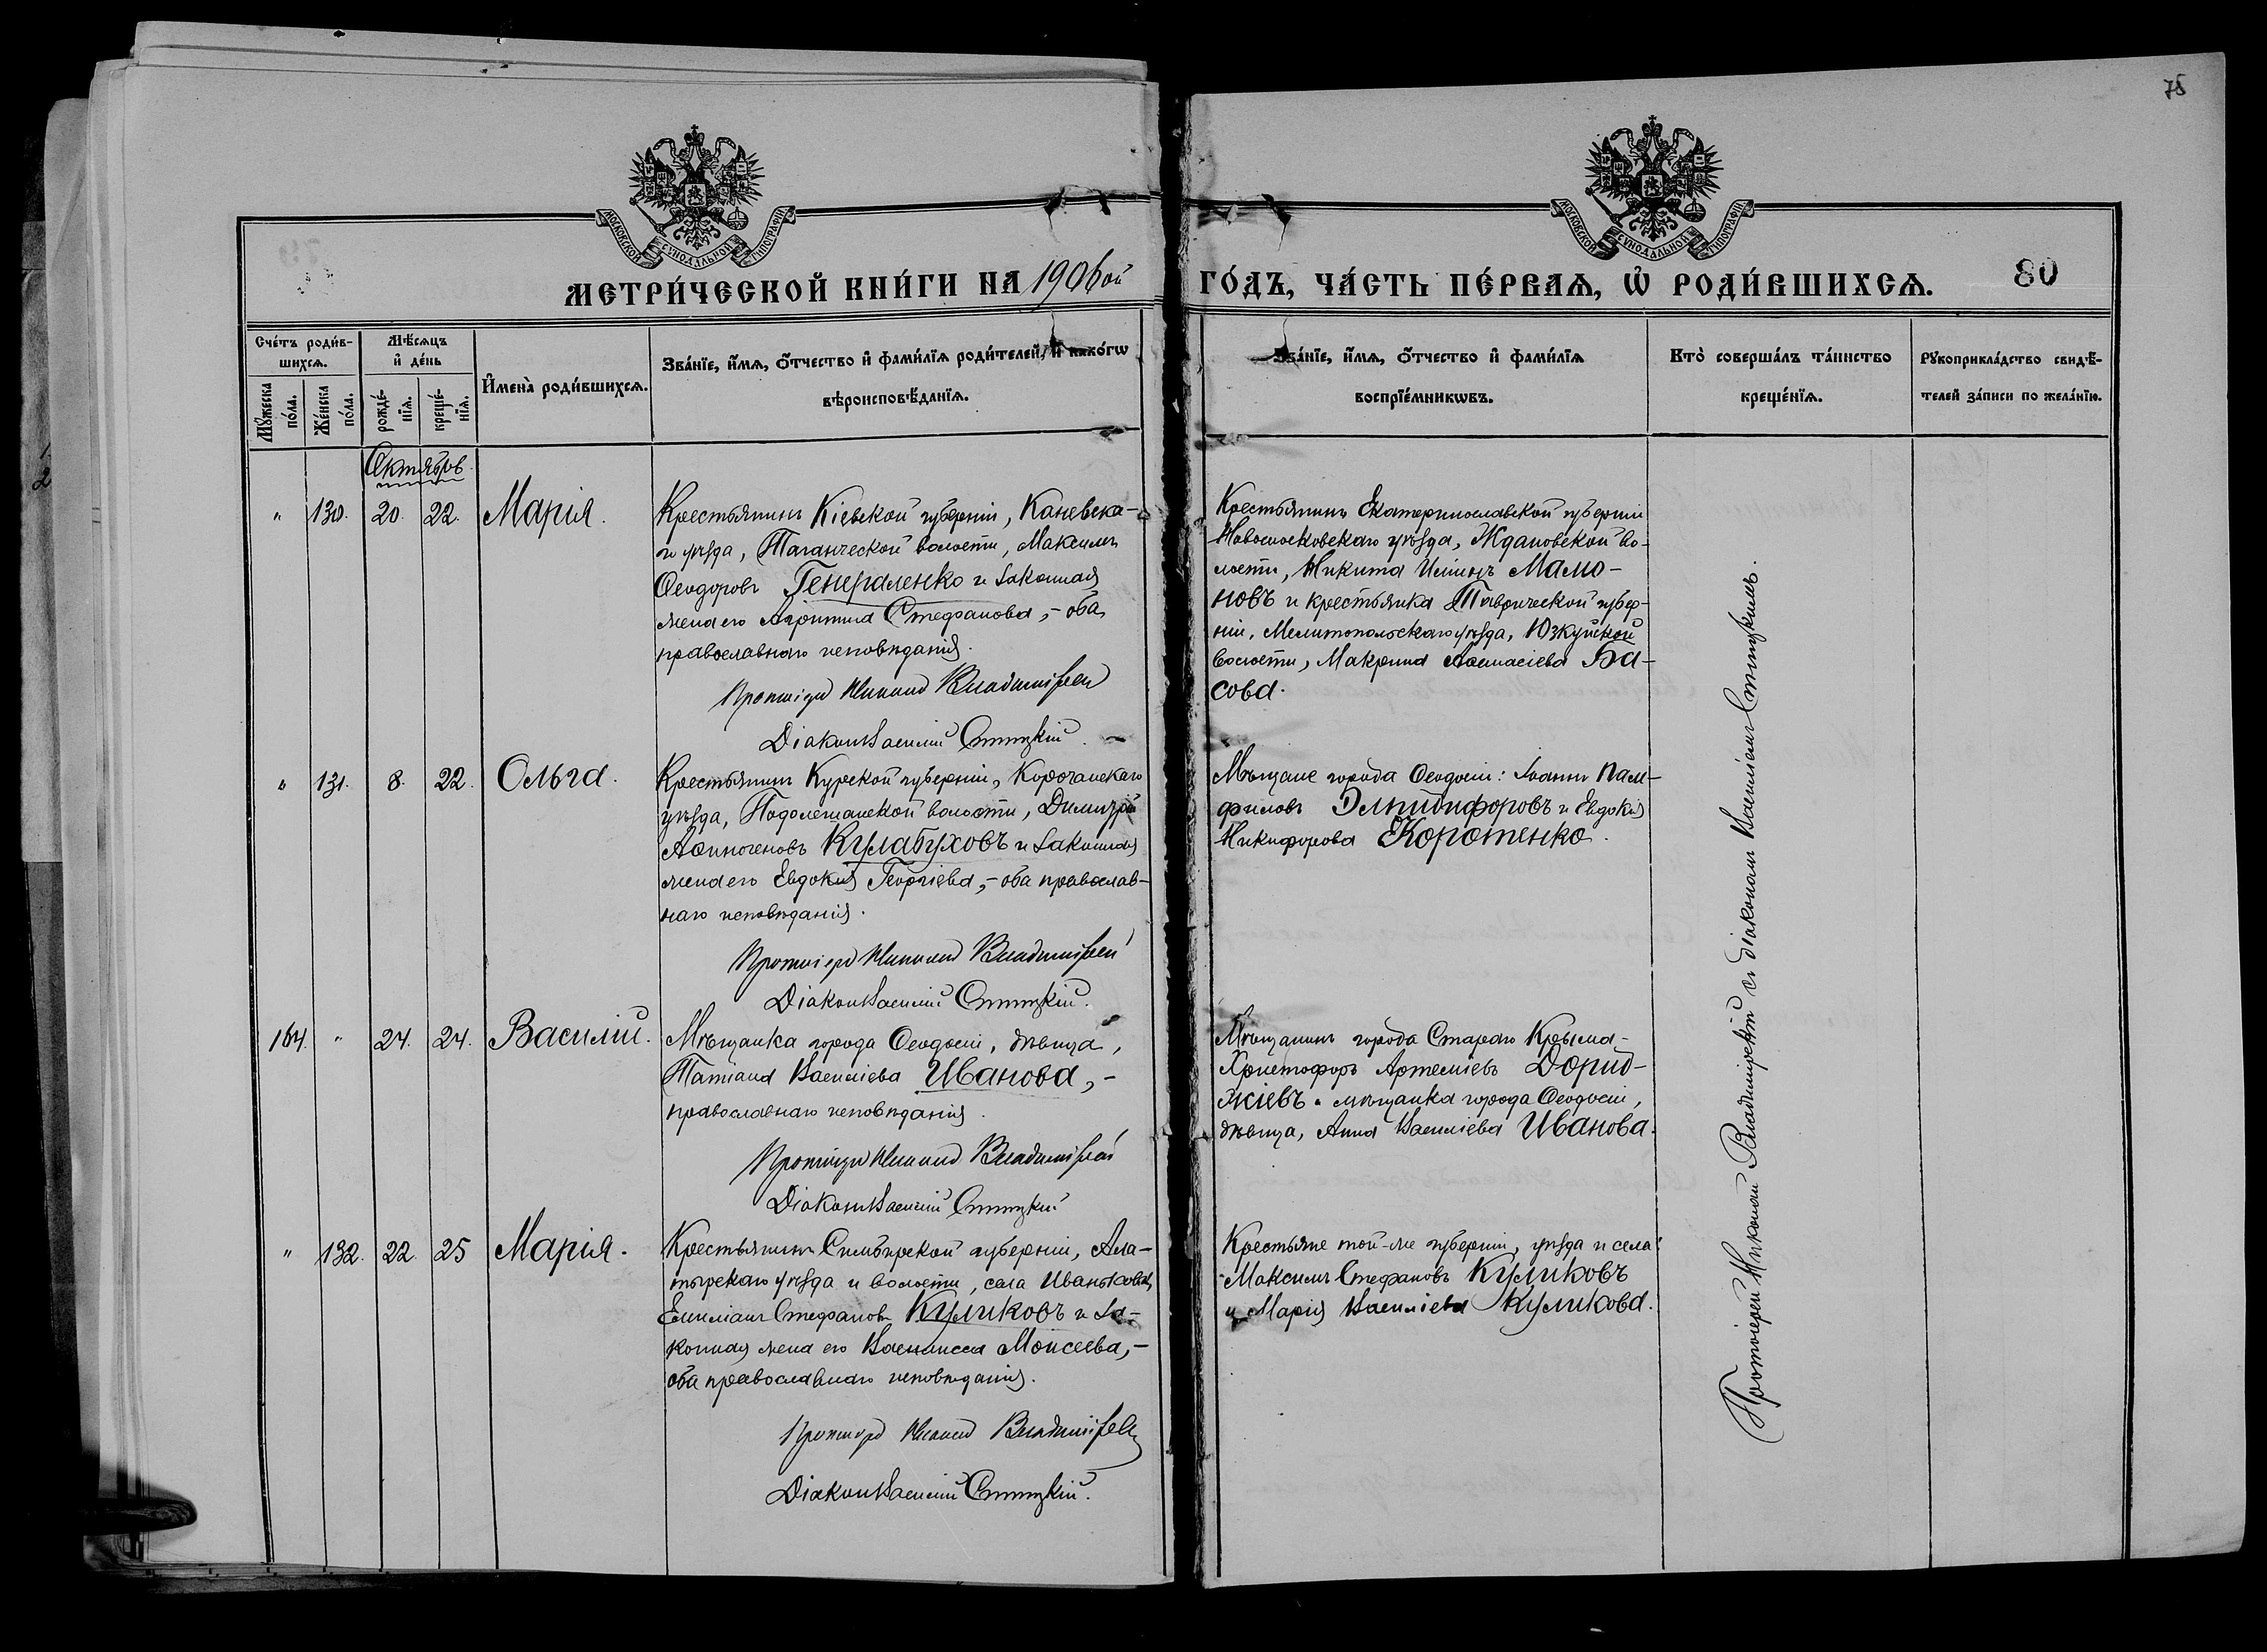 75
МОСКОВСКОЙ СѴНОДАЛЬНОЙ ТИПОГРАФІИ
МОСКОВСКОЙ СѴНОДАЛЬНОЙ ТИПОГРАФІИ
МЕТРИ́ЧЕСКОЙ КНИ́ГИ НА 1906ой ГО́ДЪ, ЧА́СТЬ ПЕ́РВАѦ, Ѡ҆ РОДИ́ВШИХСѦ. 80
Сче́тъ роди́в-
шихсѧ.
Мꙋ́жеска по́ла.
Же́нска по́ла.
Мѣ́сѧцъ
и҆ де́нь
рожде́-
нїѧ.
креще́-
нїѧ.
И҆мена̀ роди́вшихсѧ.
Зва́нїе, и҆́мѧ, ѻ҆́тчество и҆ фами́лїѧ роди́телей, и҆ како́гѡ
вѣроисповѣ́данїѧ.
Зва́нїе, и҆́мѧ, ѻ҆́тчество и҆ фами́лїѧ
воспрїе́мникѡвъ.
Кто̀ соверша́лъ та́инство
креще́нїѧ.
Рꙋкоприкла́дство свидѣ́-
телей за́писи по жела́нїю.
Октябрь
" 130. 20. 22. Марія.
Крестьянинъ Кіевской губерніи, Каневска-
го уѣзда, Таганческой волости, Максимъ
Ѳеодоровъ Генераленко и законная
жена его Агриппина Стефанова, - оба
православнаго исповѣданія.
Протоіерей Николай Владимірскій
Діаконъ Василій Ступицкій.
Крестьянинъ Екатеринославской губерніи
Новомосковскаго уѣзда, Ждановской во-
лости, Никита Иліинъ Мамо-
новъ и крестьянка Таврической губер-
ніи, Мелитопольскаго уѣзда, Юзкуйской
волости, Макрина Аѳанасіева Ба-
сова.
" 131. 8. 22. Ольга.
Крестьянинъ Курской губерніи, Корочанскаго
уѣзда, Подолешанской волости, Димитрій
Аѳиногеновъ Кулабуховъ и законная
жена его Евдокія Георгіева, - оба православ-
наго исповѣданія.
Протоіерей Николай Владимірскій
Діаконъ Василій Ступицкій.
Мѣщане города Ѳеодосіи: Іоаннъ Пам-
филовъ Элпидифоровъ и Евдокія
Никифорова Коротенко.
164. " 24. 24. Василій.
Мѣщанка города Ѳеодосіи, дѣвица,
Татіана Василіева Иванова, -
православнаго исповѣданія.
Протоіерей Николай Владимірскій
Діаконъ Василій Ступицкій
Мѣщанинъ города Стараго Крыма -
Христофоръ Артеміевъ Дорид-
жіевъ и мѣщанка города Ѳеодосіи,
дѣвица, Анна Василіева Иванова.
" 132. 22. 25 Марія.
Крестьянинъ Симбирской губерніи, Ала-
тырскаго уѣзда и волости, села Иваньково,
Емиліанъ Стефановъ Куликовъ и за-
конная жена его Василисса Моисеева, -
оба православнаго исповѣданія.
Протоіерей Николай Владимірскій
Діаконъ Василій Ступицкій.
Крестьяне той-же губерніи, уѣзда и села:
Максимъ Стефановъ Куликовъ
и Марія Василіева Куликова.
Протоіерей Николай Владимірскій съ діакономъ Василіемъ Ступицкимъ.